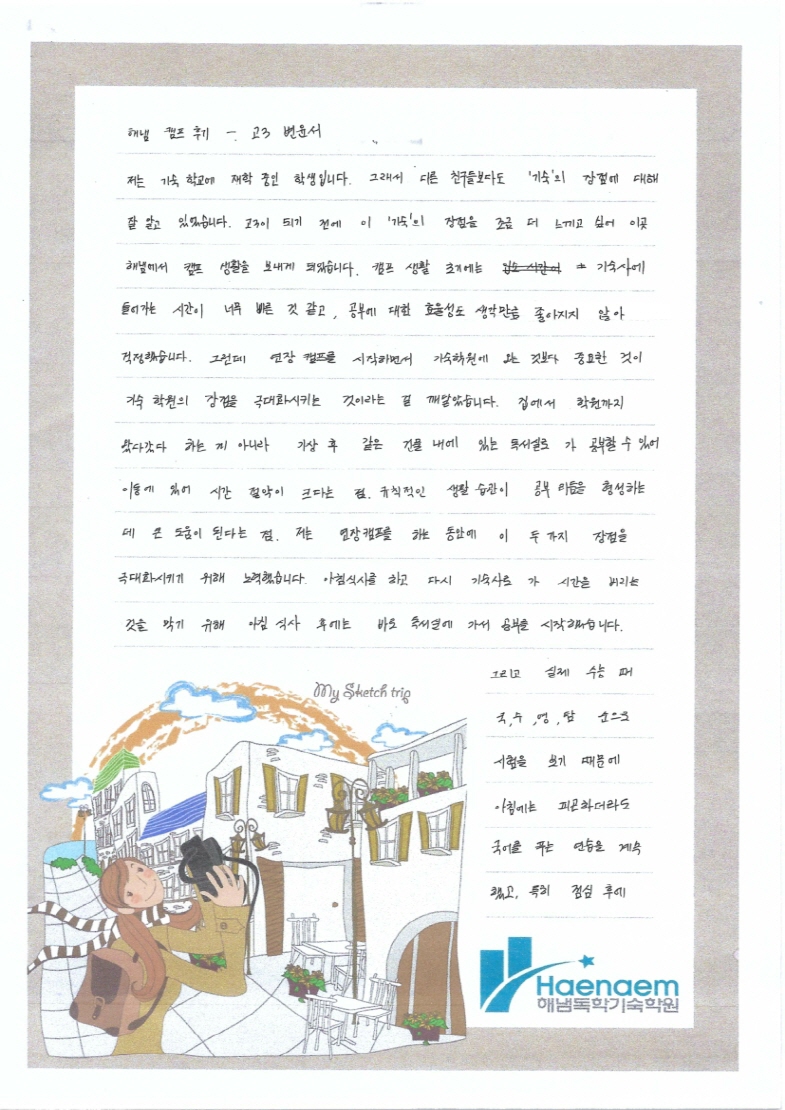 해냄 캠프 후기 - 고3 변윤서
저는 기숙 학교에 재학 중인 학생입니다. 그래서 다른 친구들보다도 '기숙'의 장점에 대해
잘 알고 있었습니다. 고3이 되기 전에 이 '기숙'의 장점을 조금 더 느끼고 싶어 이곳
해냄에서 캠프 생활을 보내게 되었습니다. 캠프 생활 초기에는 기숙사에
들어가는 시간이 너무 빠른 것 같고, 공부에 대한 효율성도 생각만큼 좋아지지 않아
걱정했습니다. 그런데 연장 캠프를 시작하면서 기숙학원에 오는 것보다 중요한 것이
기숙 학원의 장점을 극대화시키는 것이라는 걸 깨달았습니다. 집에서 학원까지
왔다갔다 하는 게 아니라 기상 후 같은 건물 내에 있는 독서실로 가 공부할 수 있어
이동에 있어 시간 절약이 크다는 점. 규칙적인 생활 습관이 공부 타임을 형성하는
데 큰 도움이 된다는 점. 저는 연장캠프를 하는 동안에 이 두 가지 장점을
극대화시키기 위해 노력했습니다. 아침식사를 하고 다시 기숙사로 가 시간을 버리는
것을 막기 위해 아침 식사 후에는 바로 독서실에 가서 공부를 시작했습니다.
그리고 실제 수능 때
국, 수, 영, 탐 순으로
시험을 보기 때문에
아침에는 피곤하더라도
국어를 푸는 연습을 계속
했고, 특히 점심 후에
My Sketch trip
Haenaem
해냄독학기숙학원